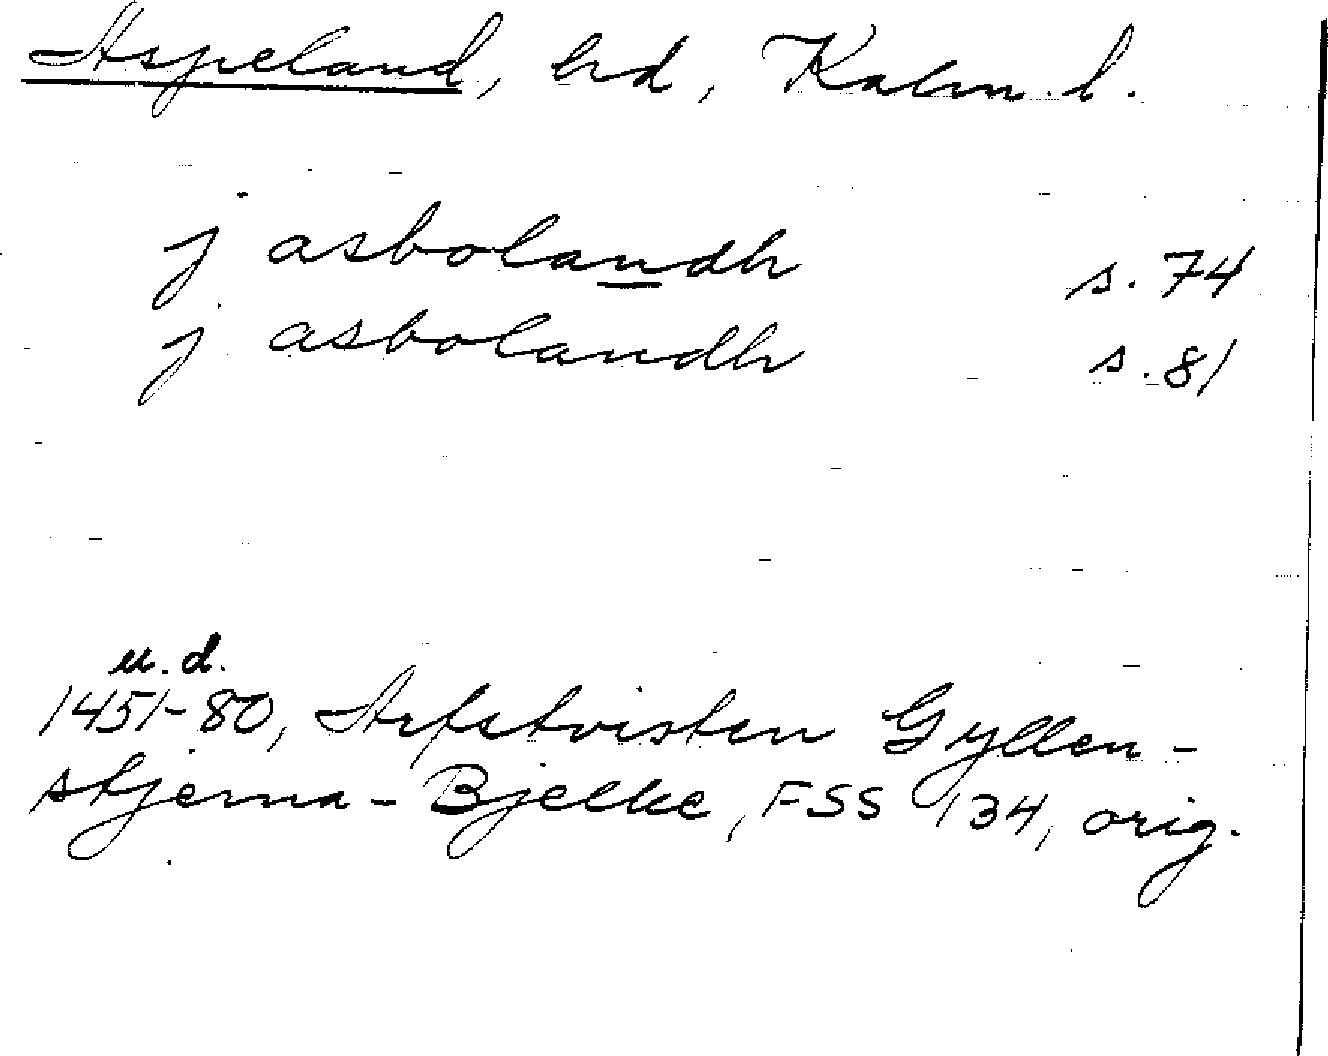 Aspeland, hd, Kalm. l.
j asbolandh s. 74
j asbolandh s. 81
u. d.
1451-80, Arfstvisten Gyllen-
stjerna - Bjelke, FSS 134, orig.